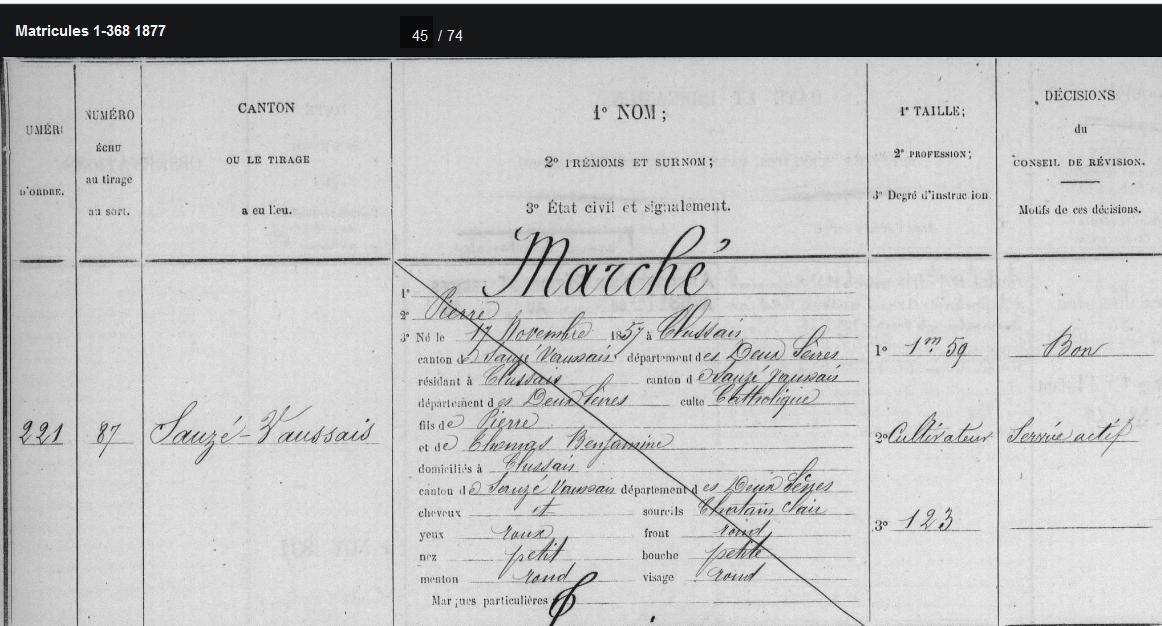 Matricules 1-368 1877
45 / 74
UMÉR
D'ORDRE.
NUMÉRO
ÉCHU
au tirage
au sort.
CANTON
OU LE TIRAGE
a eu lieu.
1º NOM;
2º PRÉNOMS ET SURNOM;
3º État civil et signalement.
1º TAILLE;
2º PROFESSION;
3º Degré d'instruc ion.
DÉCISIONS
du
CONSEIL DE RÉVISION.
Motifs de ces décisions.
221
87
Sauzé-Vaussais
1º Marché
2º Pierre
3º Né le 17 Novembre 1857 à Clussais
canton de Sauzé Vaussais département des Deux Sèvres
résidant à Clussais canton de Sauzé Vaussais
département des Deux Sèvres culte Catholique
fils de Pierre
et de Thomas Benjamine
domiciliés à Clussais
canton de Sauzé Vaussais département des Deux Sèvres
cheveux et sourcils Chatain clair
yeux roux front rond
nez petit bouche petite
menton rond visage rond
Marques particulières
1º 1m 59
2º Cultivateur
3º 123
Bon
Service actif